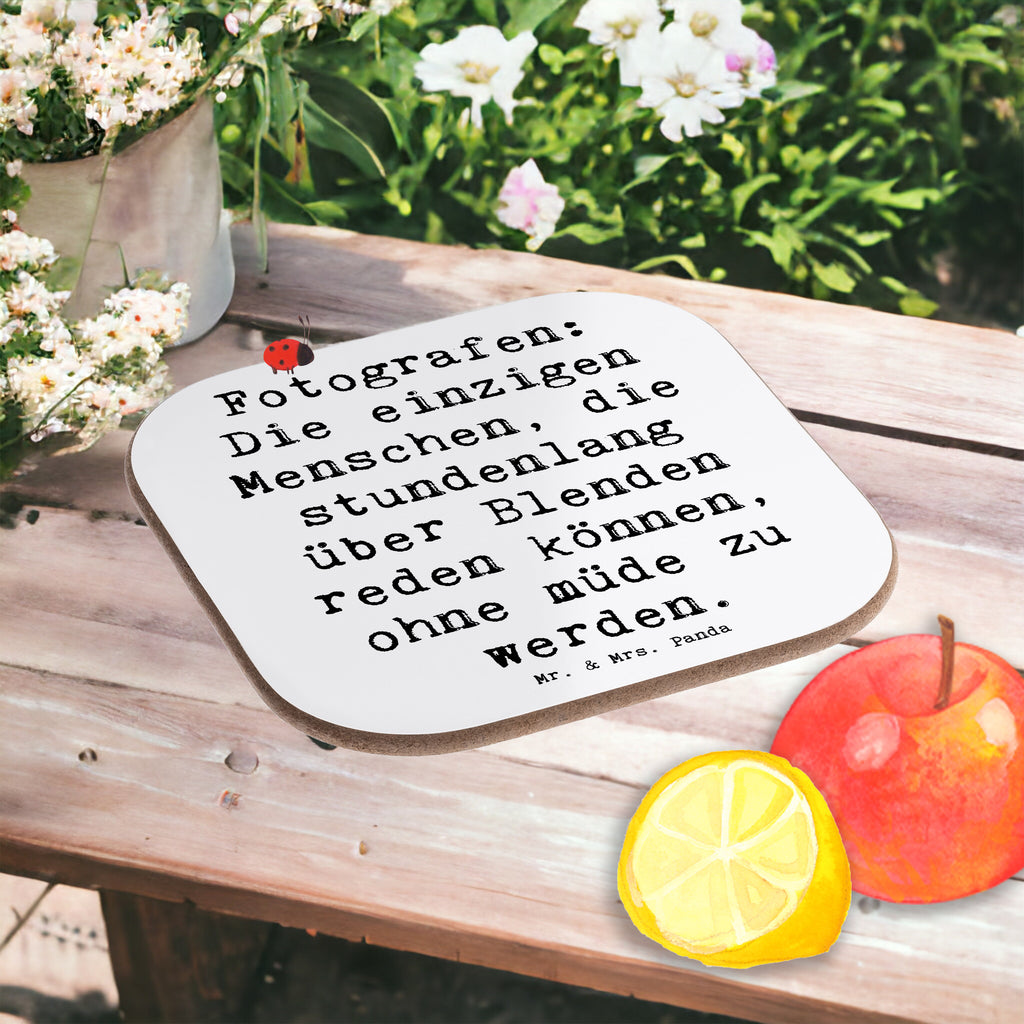 Fotografen:
Die einzigen
Menschen, die
stundenlang
über Blenden
reden können,
ohne müde zu
werden.
Mr. & Mrs. Panda